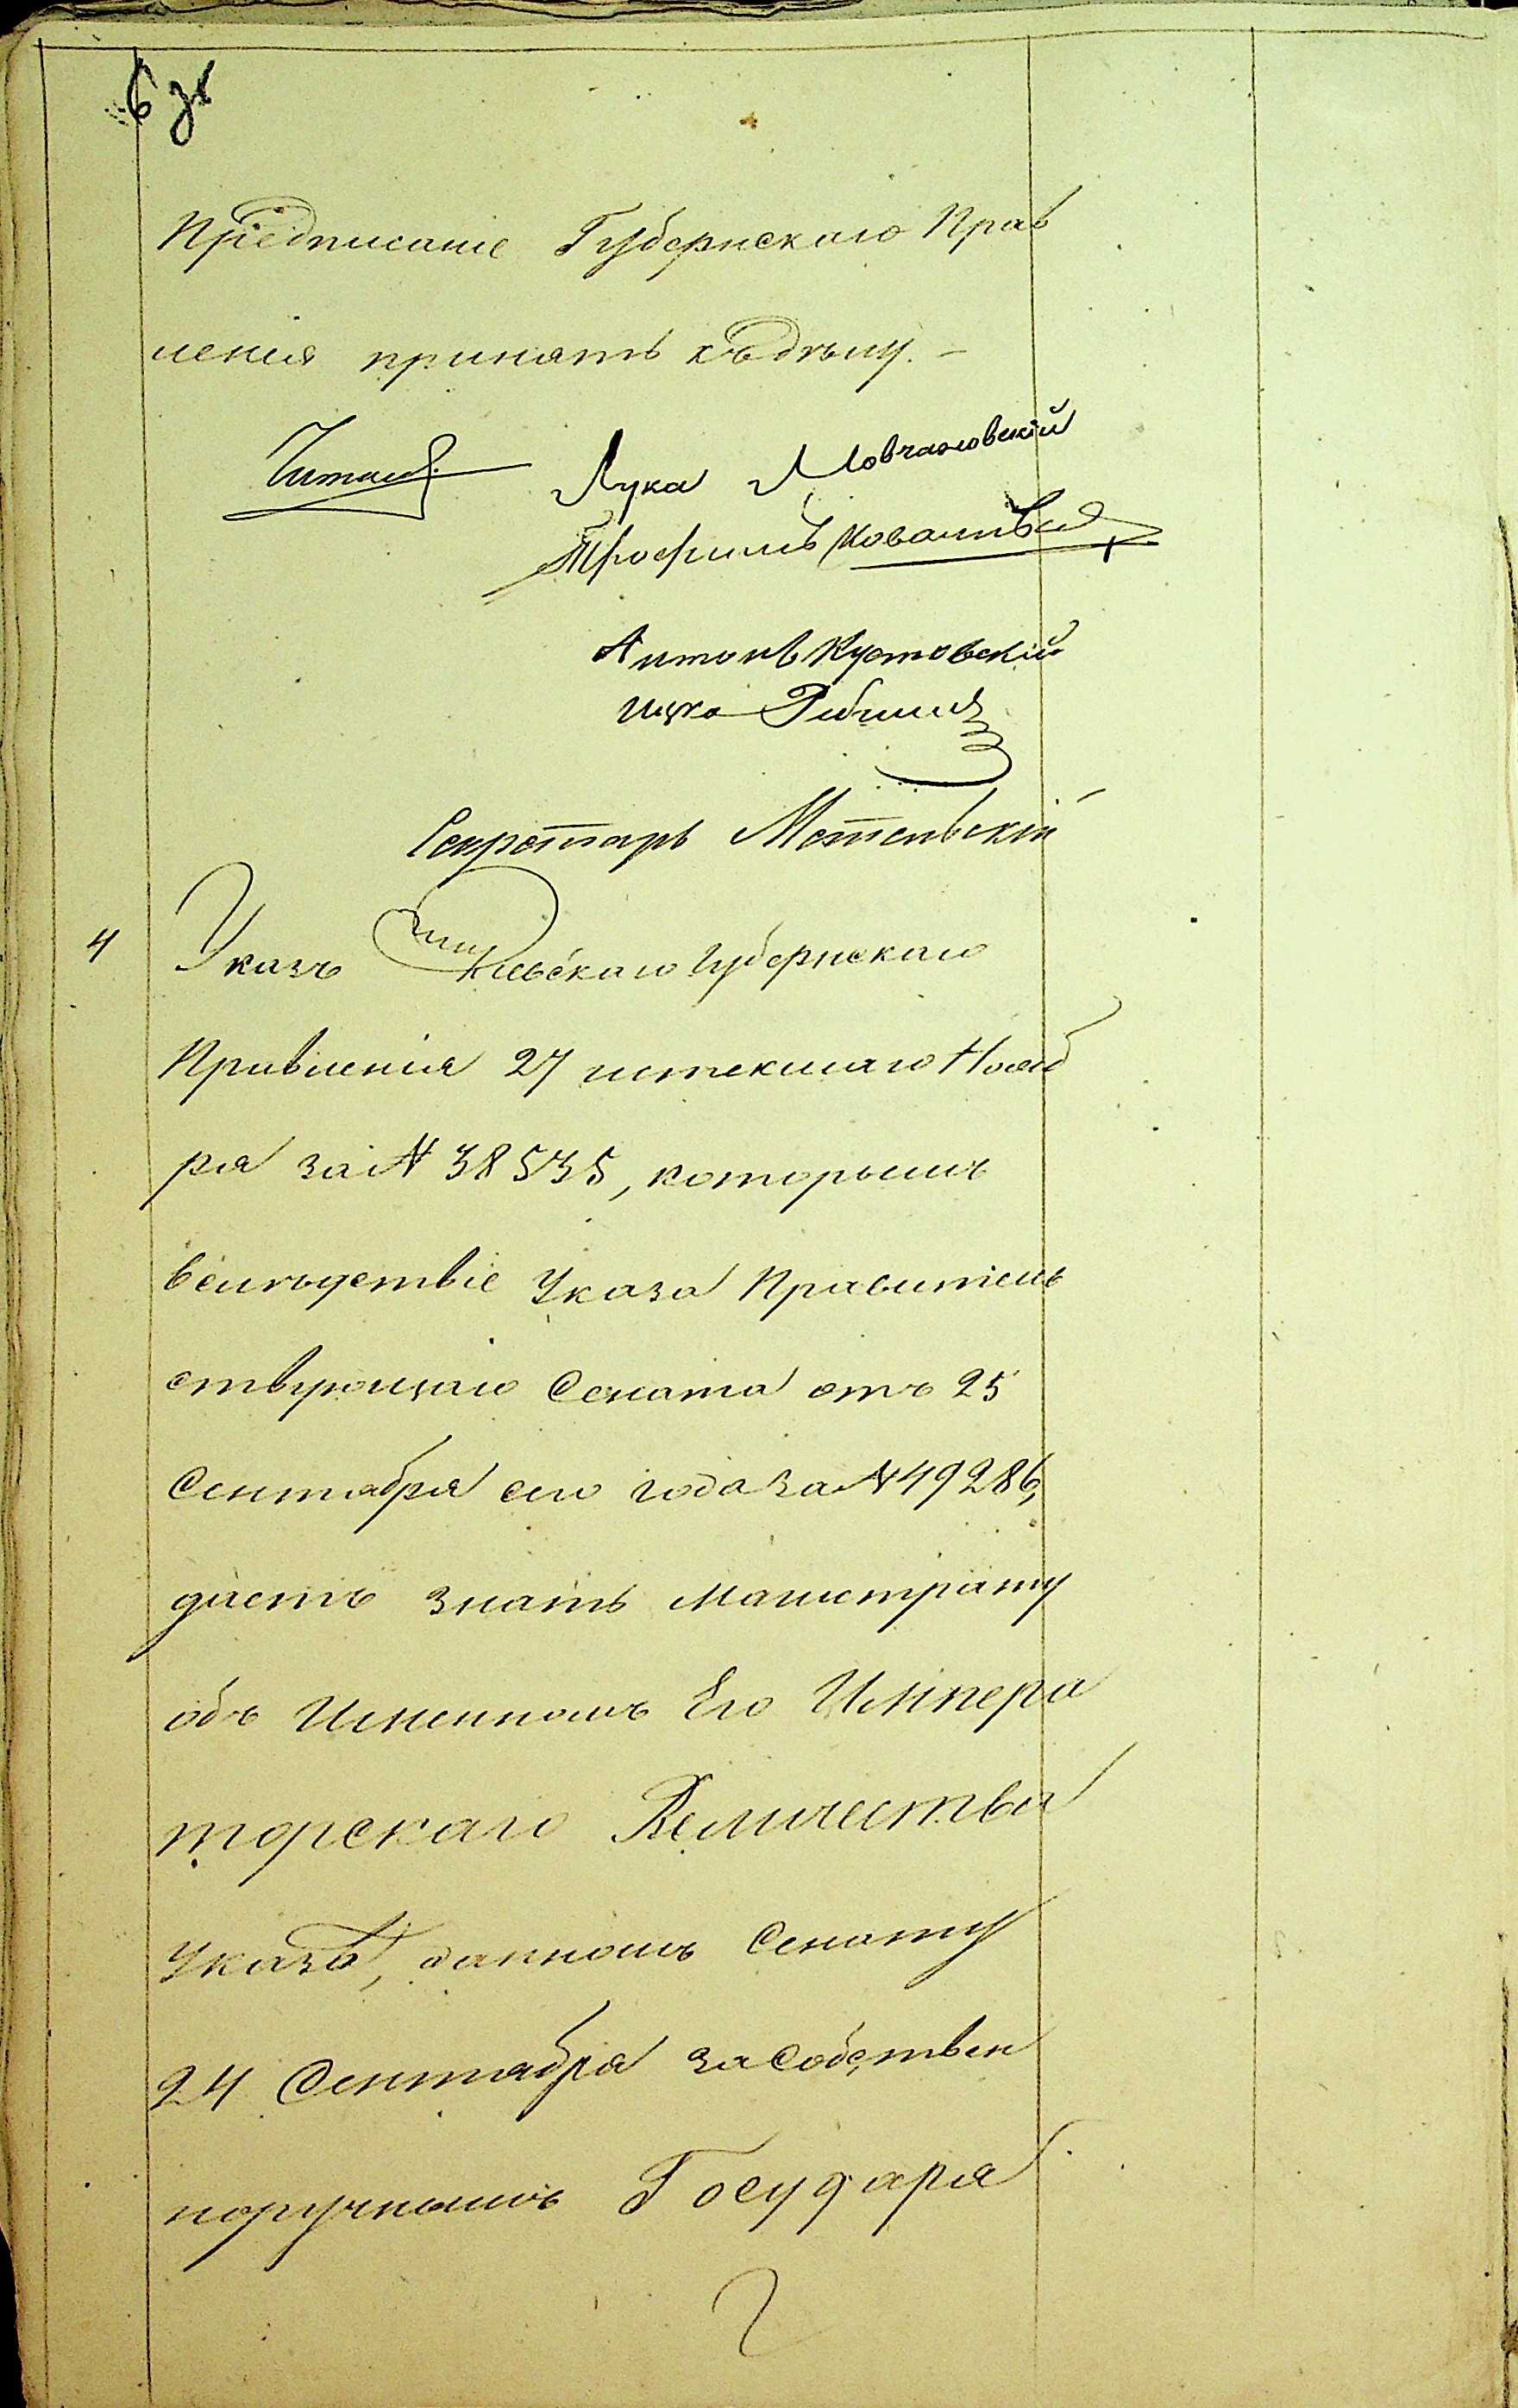 Предписаніе Губернскаго Прав
ленія принять къ дѣлу. –
Читалъ
Лука Мовчановскій
Трофимъ Ковалив
Антонъ Кутовскій
Ицко
Секретарь
4
Указъ Кіевскаго Губернскаго
Правленія 27 истекшаго Нояб
ря за № 38535, которымъ
вслѣдствіе Указа Правитель
ствующаго Сената отъ 25
Сентября сего года за № 49286,
даетъ знать Магистрату
объ Именномъ Его Импера
торскаго Величества
Указѣ, данномъ Сенату
24 Сентября за Собствен
норучнымъ Государя